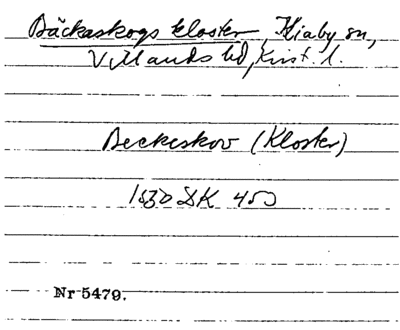 Bäckaskogs kloster, Kiaby sn,
Villands hd, Krist. l.
Beckeskov (Kloster)
1530 DK 450
Nr 5479.